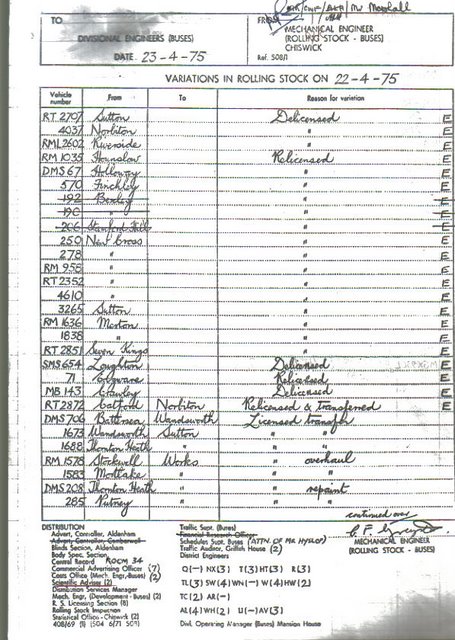 TO
DIVISIONAL ENGINEERS (BUSES)
DATE 23-4-75
FROM
MECHANICAL ENGINEER
(ROLLING STOCK - BUSES)
CHISWICK
Ref. 508/1
VARIATIONS IN ROLLING STOCK ON 22-4-75
Vehicle number From To Reason for variation
RT 2707 Sutton Delicensed E
4037 Norbiton " E
RML 2602 Riverside " E
RM 1035 Hounslow Relicensed E
DMS 67 Holloway " E
570 Finchley " E
192 Bexley " E
190 " " E
206 Stamford Hill " E
250 New Cross " E
278 " " E
RM 958 " " E
RT 2352 " " E
4610 " " E
3265 Sutton " E
RM 1636 Merton " E
1838 " " E
RT 2851 Seven Kings " E
SMS 654 Loughton Delicensed E
71 Edgware Relicensed E
MB 143 Crawley Delicensed E
RT 2872 Catford Norbiton Relicensed & transferred E
DMS 706 Battersea Wandsworth Licensed transfer
1673 Wandsworth Sutton " "
1688 Thornton Heath " " "
RM 1578 Stockwell Works " overhaul
1583 Mortlake " " "
DMS 208 Thornton Heath " " repaint
285 Putney " " "
continued over
MECHANICAL ENGINEER
(ROLLING STOCK - BUSES)
DISTRIBUTION
Advert. Controller, Aldenham
Advert. Controller, Camberwell
Blinds Section, Aldenham
Body Spec. Section
Central Record ROOM 34
Commercial Advertising Officer (7)
Costs Office (Mech. Engr.-Buses) (2)
Scientific Adviser (2)
Distribution Services Manager
Mech. Engr. (Development - Buses) (2)
R. S. Licensing Section (8)
Rolling Stock Inspection
Statistical Office - Chiswick (2)
408/69 (1) (504 6/71 501)
Traffic Supt. (Buses)
Financial Research Officer
Schedules Supt. Buses (ATTN. OF MR HYSLOP)
Traffic Auditor, Griffith House (2)
District Engineers
Q(-) NX(3) T(3) HT(3) R(3)
TL(3) SW(4) WN(-) W(4) HW(2)
TC(2) AR(-)
AL(4) WH(2) U(-) AV(3)
Divl. Operating Manager (Buses) Mansion House